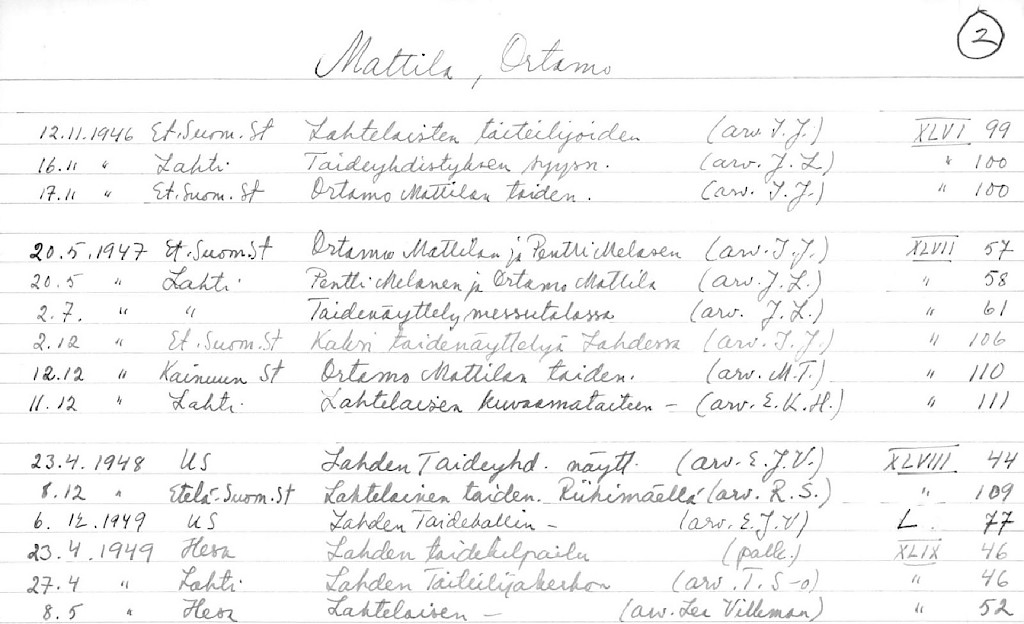 2
Mattila, Ortamo
12.11.1946 Et.Suom.St Lahtelaisten taiteilijoiden (arv. I.J.) XLVI 99
16.11 " Lahti. Taideyhdistyksen syysn. (arv. J.L) " 100
17.11 " Et.Suom.St Ortamo Mattilan taiden. (arv. I.J.) " 100
20.5.1947 Et.Suom.St Ortamo Mattilan ja Pentti Melasen (arv. I.J.) XLVII 57
20.5 " Lahti. Pentti Melanen ja Ortamo Mattila (arv. J.L.) " 58
2.7. " " Taidenäyttely messutalossa (arv. J.L.) " 61
2.12 " Et.Suom.St Kaksi taidenäyttelyä Lahdessa (arv. I.J.) " 106
12.12 " Kainuun St Ortamo Mattilan taiden. (arv. M.T.) " 110
11.12 " Lahti. Lahtelaisen kuvaamataiteen - (arv. E.K.H.) " 111
23.4.1948 US Lahden Taideyhd. näytt. (arv. E.J.V.) XLVIII 44
8.12 " Etelä-Suom.St Lahtelainen taiden. Riihimäellä (arv. R.S.) " 109
6.12.1949 US Lahden Taidehallin - (arv. E.J.V) L. 77
23.4.1949 Hesa Lahden taidekilpailu (palk.) XLIX 46
27.4 " Lahti. Lahden Taiteilijakerhon (arv. T.S-o) " 46
8.5 " Hesa Lahtelaisen - (arv. Lea Villeman) " 52